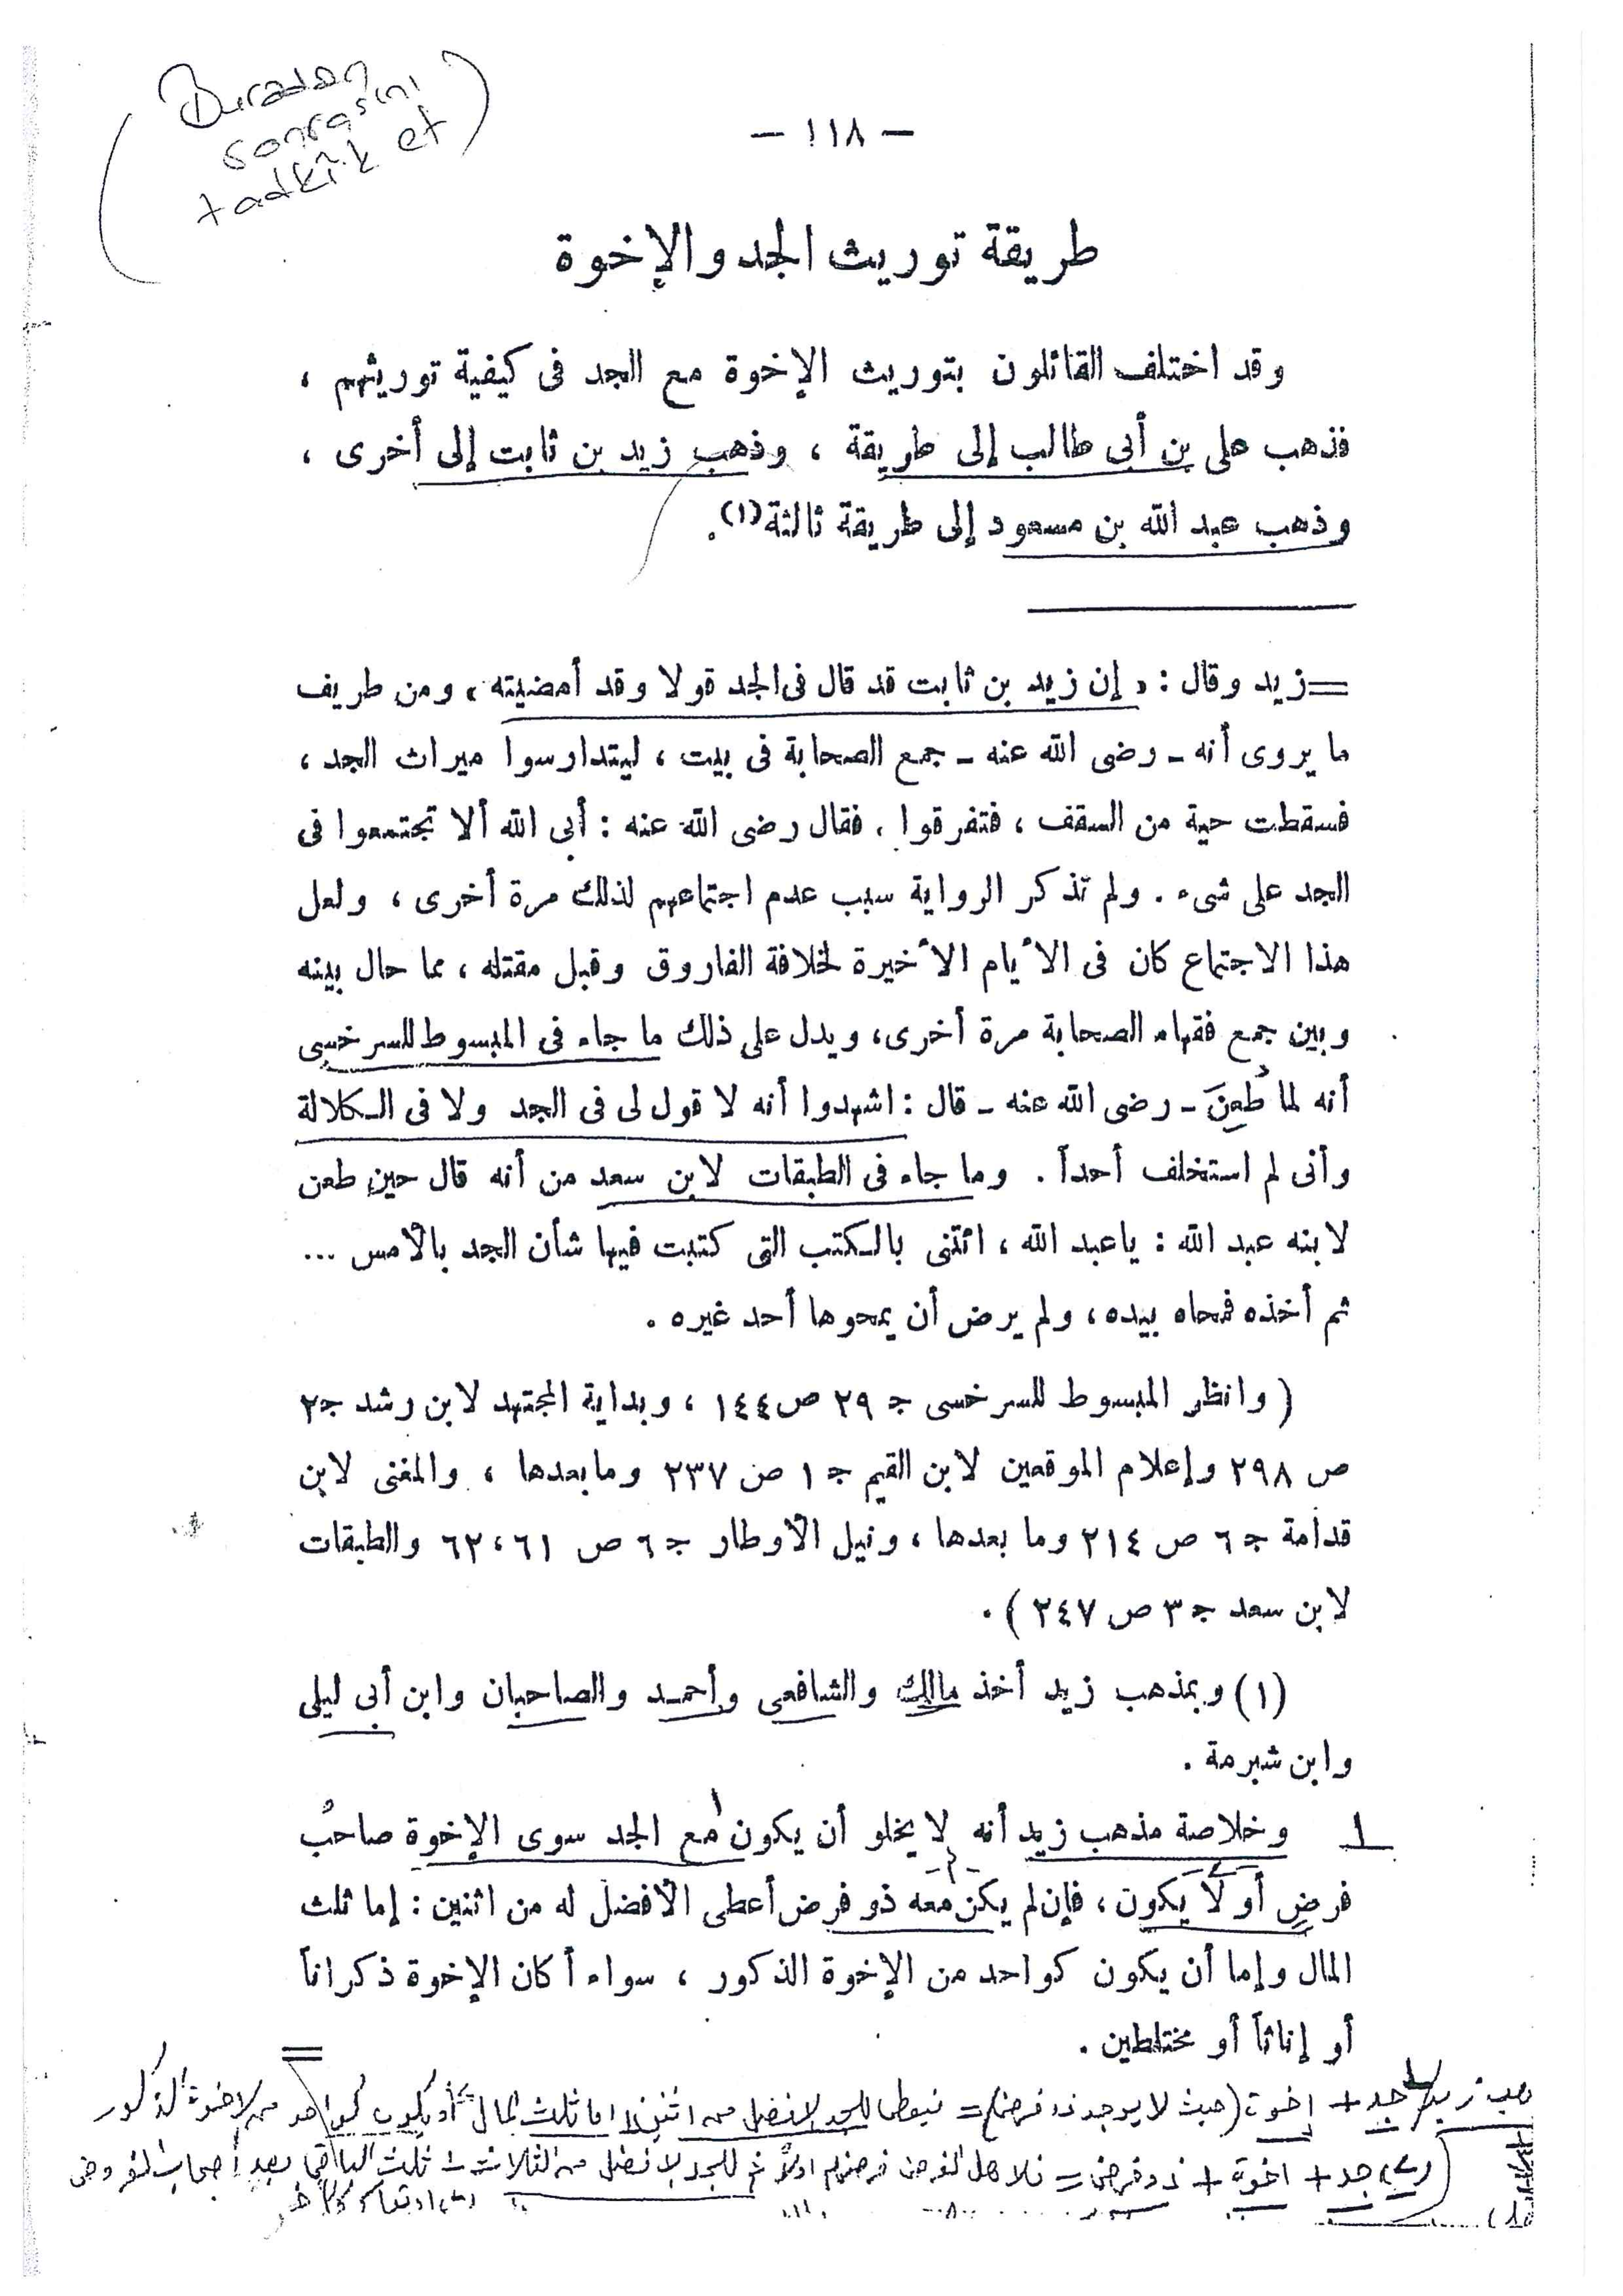 (Buradan
sonrasını
tadkîk et)
— ١١٨ —
طريقة توريث الجد والإخوة
وقد اختلف القائلون بتوريث الإخوة مع الجد فى كيفية توريثهم ،
فذهب على بن أبى طالب إلى طريقة ، وذهب زيد بن ثابت إلى أخرى ،
وذهب عبد الله بن مسعود إلى طريقة ثالثة(١).
=زيد وقال : « إن زيد بن ثابت قد قال فى الجد قولا وقد أمضيته » ومن طريف
ما يروى أنه - رضى الله عنه - جمع الصحابة فى بيت ، ليتدارسوا ميراث الجد ،
فسقطت حية من السقف ، فتفرقوا . فقال رضى الله عنه : أبى الله ألا تجتمعوا فى
الجد على شىء . ولم تذكر الرواية سبب عدم اجتماعهم لذلك مرة أخرى ، ولعل
هذا الاجتماع كان فى الأيام الأخيرة لخلافة الفاروق وقبل مقتله ، مما حال بينه
وبين جمع فقهاء الصحابة مرة أخرى، ويدل على ذلك ما جاء فى المبسوط للسرخسى
أنه لما طُعِنَ - رضى الله عنه - قال : اشهدوا أنه لا قول لى فى الجد ولا فى الكلالة
وأنى لم استخلف أحداً . وما جاء فى الطبقات لابن سعد من أنه قال حين طعن
لابنه عبد الله : ياعبد الله ، ائتنى بالكتب التى كتبت فيها شأن الجد بالأمس ...
ثم أخذه فمحاه بيده ، ولم يرض أن يمحوها أحد غيره .
( وانظر المبسوط للسرخسى ج ٢٩ ص ١٤٤ ، وبداية المجتهد لابن رشد ج ٢
ص ٢٩٨ وإعلام الموقعين لابن القيم ج ١ ص ٢٣٧ ومابعدها ، والمغنى لابن
قدامة ج ٦ ص ٢١٤ وما بعدها ، ونيل الأوطار ج ٦ ص ٦١ ، ٦٢ والطبقات
لابن سعد ج ٣ ص ٢٤٧ ) .
(١) وبمذهب زيد أخذ مالك والشافعى وأحمد والصاحبان وابن أبى ليلى
وابن شبرمة .
وخلاصة مذهب زيد أنه لا يخلو أن يكون مع الجد سوى الإخوة صاحبُ
فرضٍ أو لا يكون ، فإن لم يكن معه ذو فرض أعطى الأفضل له من اثنين : إما ثلث
المال وإما أن يكون كواحد من الإخوة الذكور ، سواء أكان الإخوة ذكراناً
أو إناثاً أو مختلطين .
=
جد + اخوة (حيث لا يوجد ذو فرض) = فيعطى للجد الافضل من اثنين اما ثلث المال او يكون كواحد من الاخوة الذكور
(٢) جد + اخوة + ذو فرض = فلاهل الفرض فرضهم اولاً ثم للجد الافضل من الثلاث ثلث الباقي بعد أصحاب الفروض